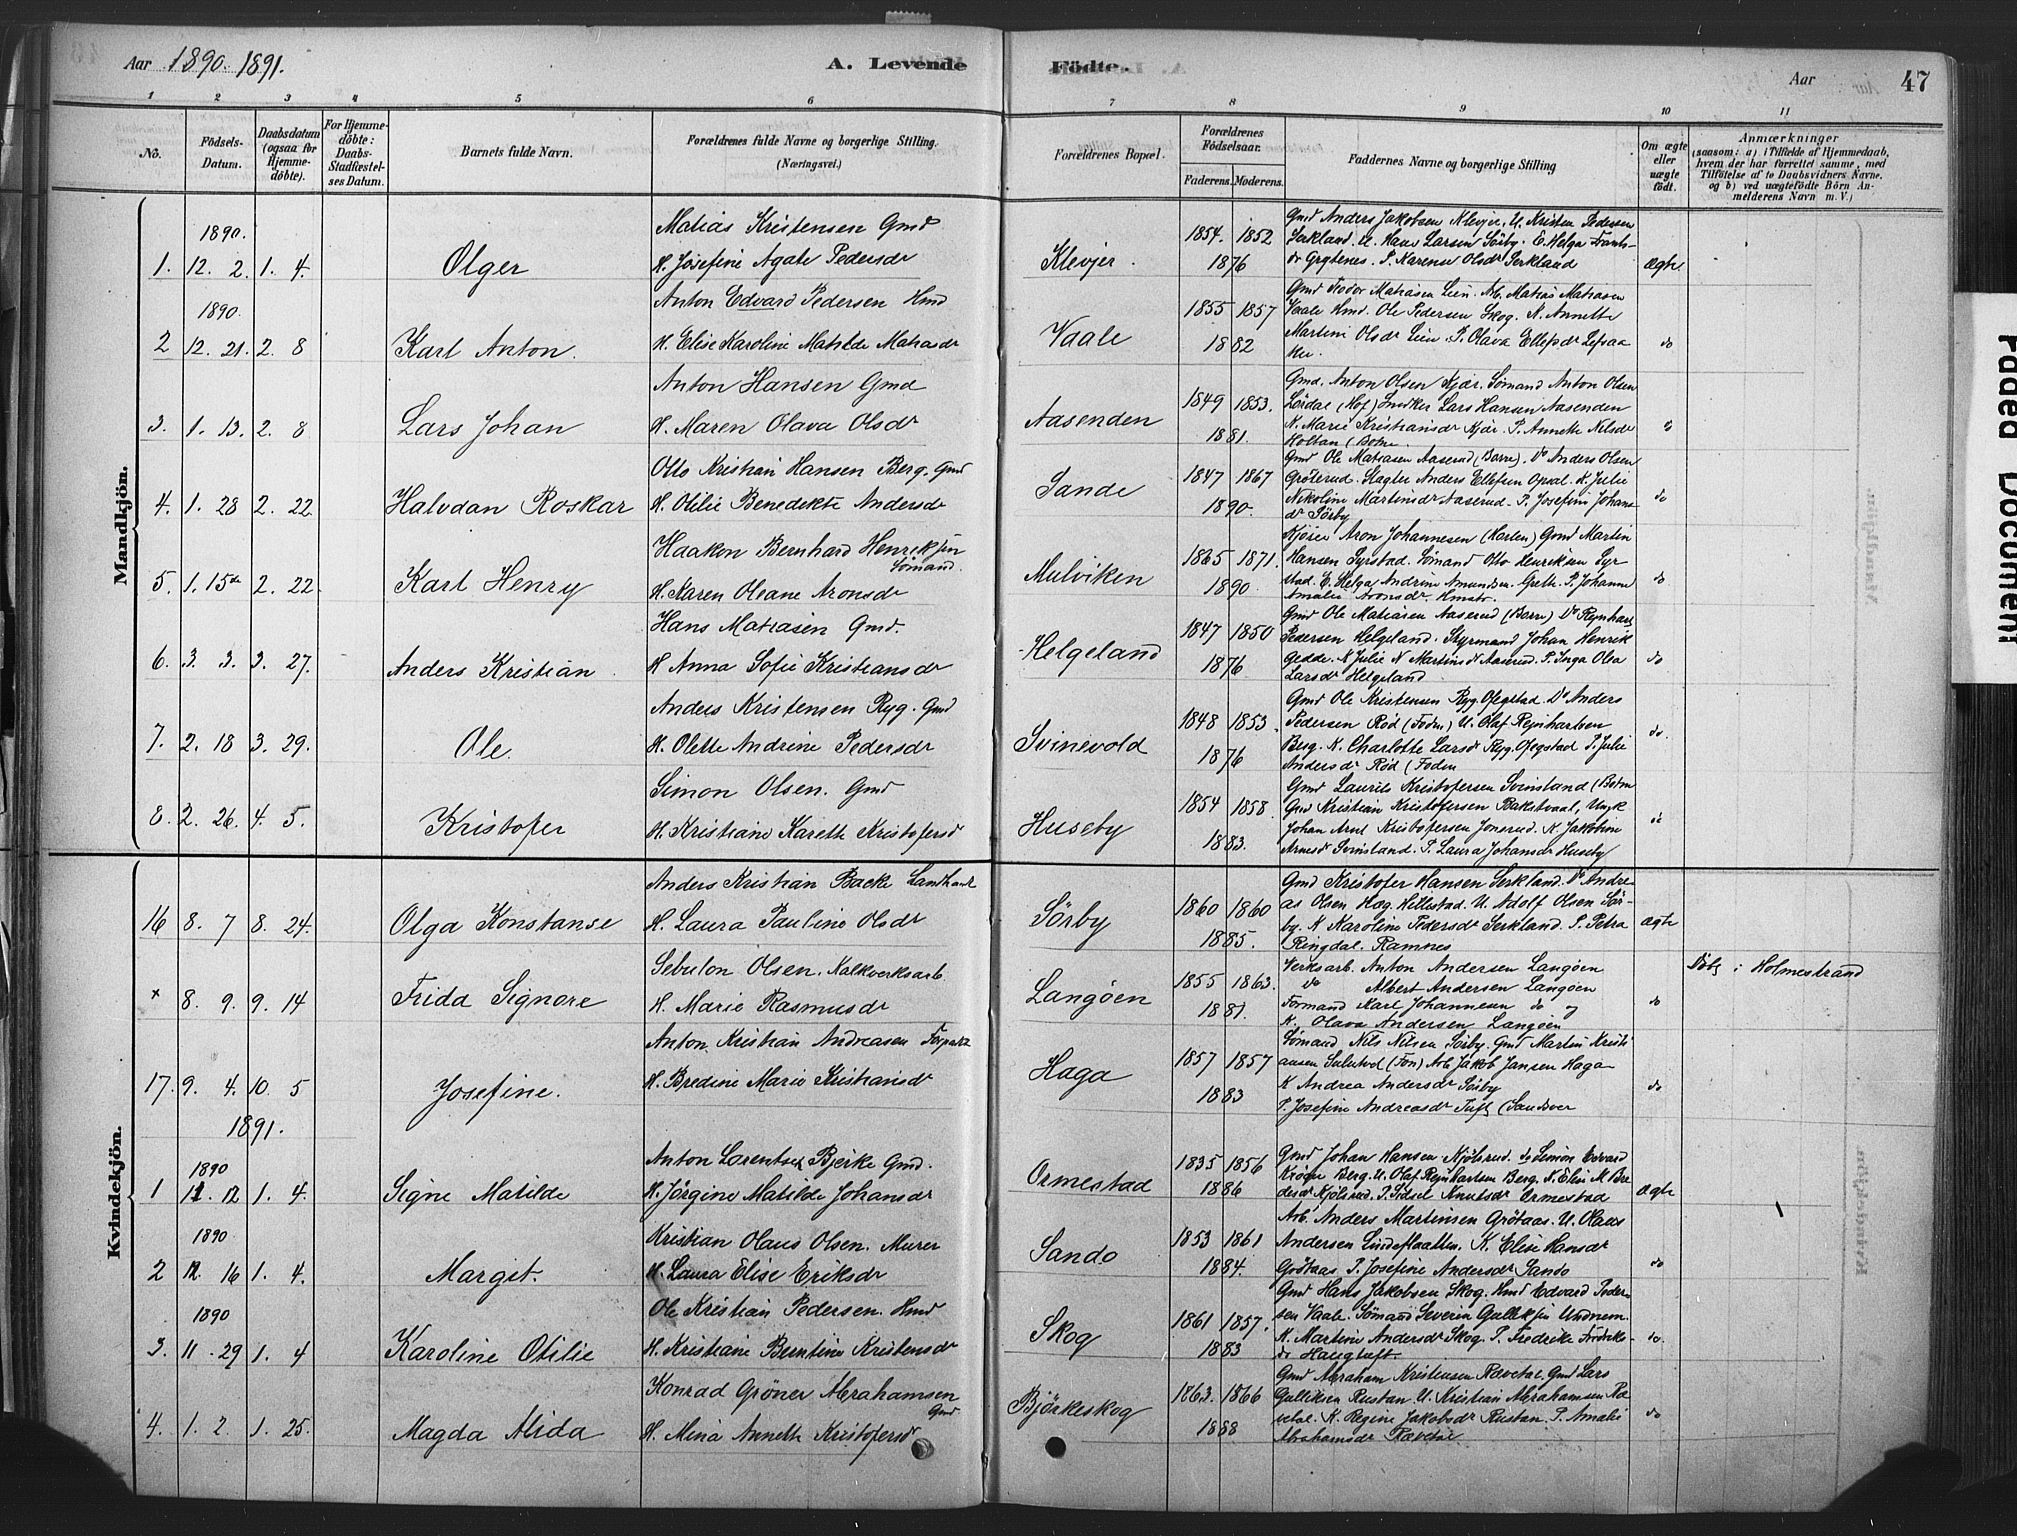 Aar 1890. 1891.
A. Levende
Födte.
Aar
47
1 2 3 4 5 6 7 8 9 10 11
No.
Födsels-
Datum.
Daabsdatum
(ogsaa for
Hjemme-
döbte).
For Hjemme-
döbte:
Daabs-
Stadfæstel-
ses Datum.
Barnets fulde Navn.
Forældrenes fulde Navne og borgerlige Stilling.
(Næringsvei.)
Forældrenes Bopæl.
Forældrenes
Födselsaar.
Faderens. Moderens.
Faddernes Navne og borgerlige Stilling
Om ægte
eller
uægte
født.
Anmærkninger
(saasom: a) i Tilfælde af Hjemmedaab,
hvem der har forrettet samme, med
Tilföielse af to Daabsvidners Navne,
og b) ved uægtefödte Börn An-
melderens Navn m. V.)
Mandkjön.
1890.
1. 12. 2. 1. 4. Olger
Matias Kristensen Gmd
H. Josefine Agate Pedersdr
Klevjer.
1854. 1852
1876
Gmd Anders Jakobsen Klevjer. U. Kristen Pedersen
Serkland. U. Hans Larsen Sörby. E. Helga Frants-
dr Grytenes. P. Karense Olsdr Serkland
Ægte
1890.
2 12. 21. 2. 8 Karl Anton.
Anton Edvard Pedersen Hmd
H. Elise Karoline Matilde Matiasdr
Vaale
1855 1857
1882
Gmd Teodor Matiasen Lien. Arb. Matias Matiasen
Vaale Hmd. Ole Pedersen Skog. K. Annette
Martine Olsdr Lien. P. Olava Ellefsdr Lefsaa
ker.
do
3. 1. 13. 2. 8 Lars Johan
Anton Hansen Gmd
H. Maren Olava Olsdr
Aasenden
1849 1853.
1881.
Gmd. Anton Olsen Kjær. Sømand Anton Olsen
Lørdal (Hof) Snedker Lars Hansen Aasenden
K. Marie Kristiansdr Kjær. P. Annette Nilsdr
Holtan (Botne.
do
4. 1. 28 2. 22. Halvdan Roskar
Otto Kristian Hansen Berg. Gmd
H. Otilie Benedikte Andersdr
Sande
1847 1867
1890.
Gmd Ole Matiasen Aaserud (Borre). Do Anders Olsen
Grøterud. Slagter Anders Ellefsen Opsal. K. Julie
Nikoline Martinsdr Aaserud. P. Josefine Johans-
dr Sörby
do
5. 1. 15de 2. 22. Karl Henry
Haakon Bernhard Henriksen
Sømand.
H. Karen Oleane Aronsdr
Mulviken
1865 1871.
1890.
Kjører Aron Johannesen (Horten) Gmd Martin
Hansen Syrstad. Sømand Otto Henriksen Syr
stad. E. Helga Andrine Amundsen. Grette P. Johanne
Amalie Aronsdr. Hmstr.
do
6. 3. 3. 3. 27. Anders Kristian
Hans Matiasen Gmd.
H. Anna Sofie Kristiansdr
Helgeland
1847 1850
1876
Gmd Ole Matiasen Aaserud (Borre) Do Reinhart
Pedersen Helgeland. Styrmand Johan Henrik
Gedde. K. Julie N Martinsdr Aaserud. P. Inga Olea
Larsdr Helgeland.
do
7. 2. 18 3. 29. Ole.
Anders Kristensen Ryg. Gmd
H. Olette Andrine Pedersdr
Svinevold
1848 1853.
1876
Gmd Ole Kristensen Ryg. Ofegstad. Do Anders
Pedersen Rød (Foden) U. Olaf Reinhartsen
Berg. K. Charlotte Larsdr Ryg. Ofegstad P. Julie
Andersdr Rød (Foden
do.
8. 2. 26. 4. 5. Kristofer
Simon Olsen. Gmd
H. Kristiane Karette Kristofersdr
Huseby
1854 1858.
1883.
Gmd Laurits Kristofersen Svinsland (Botne
Gmd Kristian Kristofersen Bakstvaal, Ungk
Johan Arnt Kristofersen Jonsrud. K. Jakobine
Arnesdr Svinsland. P. Laura Johansdr Huseby
do
Kvindekjön.
16 8. 7 8. 24. Olga Konstanse
Anders Kristian Backe Landhand
H. Laura Pauline Olsdr
Sörby
1860 1860
1885.
Gmd Kristofer Hansen Serkland. Do Andre-
as Olsen Hag. Hillestad. U. Adolf Olsen Sör-
by. K Karoline Pedersdr Serkland. P. Petra
Ringdal. Ramnes
Ægte
x 8. 9. 9. 14 Frida Signore
Sebulon Olsen. Kalkverksarb.
H. Marie Rasmusdr
Langöen
1855 1863.
1881.
Verksarb. Anton Andersen Langöen
do Albert Andersen Langöen
Formand Karl Johannesen do og
K. Olava Andersen Langöen
do
Döbt i Holmestrand
17. 9. 4. 10. 5 Josefine.
Anton Kristian Andreasen Forpakt
H. Bredine Marie Kristiansdr
Haga
1857 1857
1883
Sømand Nils Nilsen Sörby. Gmd Martin Kristi
ansen Sulutvd (Fon) Arb Jakob Jansen Haga
K Andrea Andersdr Sörby
P. Josefine Andreasdr Tuft (Sandsver
do
1891.
1890
1 12. 12 1. 4. Signe Matilde
Anton Lorentsen Bjerke Gmd.
H. Jörgine Matilde Johansdr
Ormestad
1835 1856
1886
Gmd Johan Hansen Kjölsrud. do Simon Edvard
Kröger Berg. U. Olaf Reinhartsen Berg. K. Elise M. Bre
desdr Kjölsrud. P. Sidsel Knutsdr Ormestad
Ægte
1890
2 12 16 1. 4. Margit.
Kristian Olaus Olsen. Murer
H. Laura Elise Eriksdr
Sando
1853 1861
1884.
Arb. Anders Martinsen Grötaas. U. Olaus
Andersen Lindeflaatten. K. Elise Hansdr
Grötaas P. Josefine Andersdr Sando
do
1890
3. 11. 29 1. 4 Karoline Otilie
Ole Kristian Pedersen. Hmd
H. Kristiane Berntine Kristensdr
Skog
1861 1857.
1883
Gmd Hans Jakobsen Skog. Hmd Edvard Peder-
sen Vaale. Sømand Severin Gulliksen Undnem.
K. Martine Andersdr Skog. P. Fredrike Fredriks-
dr Haugtuft.
do.
4. 1. 2. 1. 25. Magda Alida
Konrad Gröner Abrahamsen
Gmd
H. Mina Annette Kristofersdr
Björkeskog
1863. 1866
1888
Gmd Abraham Kristensen Rævetal. Gmd Lars
Gulliksen Rustan. U. Kristian Abrahamsen Ræ-
vetal. K. Regine Jakobsdr Rustan. P. Amalie
Abrahamsdr Rævetal
do
Padea Document